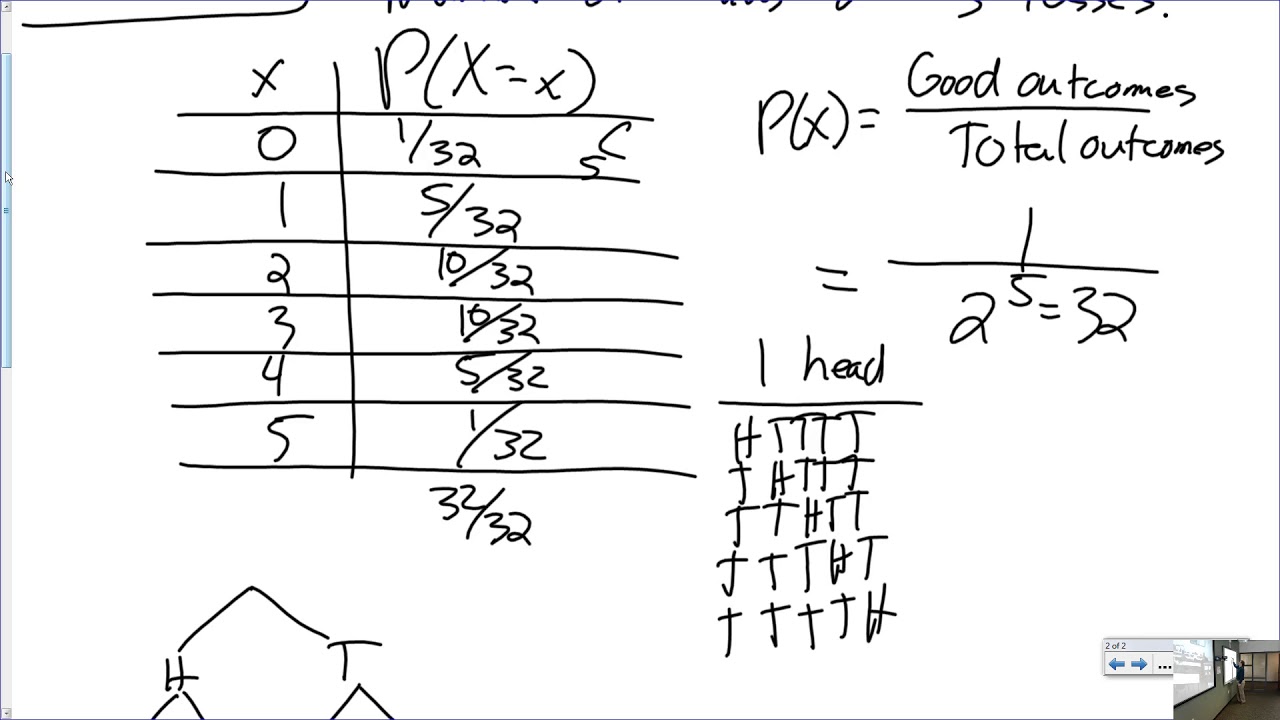 5 tosses.
x P(X=x)
0 1/32 5C
1 5/32
2 10/32
3 10/32
4 5/32
5 1/32
32/32
P(x) = Good outcomes / Total outcomes
= 1 / 2^5 = 32
1 head
H T T T T
T H T T T
T T H T T
T T T H T
T T T T H
H T
2 of 2
...